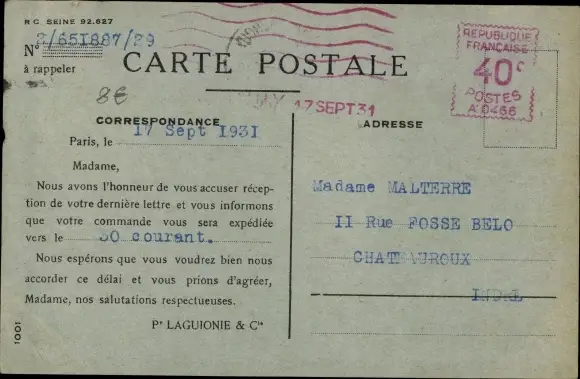 R C. SEINE 92.627
Nº 3/651887/29
à rappeler
CARTE POSTALE
REPUBLIQUE
FRANÇAISE
40c
POSTES
A 0466
8€
17 SEPT 31
CORRESPONDANCE
ADRESSE
Paris, le 17 Sept 1931
Madame,
Nous avons l'honneur de vous accuser récep-
tion de votre dernière lettre et vous informons
que votre commande vous sera expédiée
vers le 30 courant.
Nous espérons que vous voudrez bien nous
accorder ce délai et vous prions d'agréer,
Madame, nos salutations respectueuses.
Pr LAGUIONIE & Cie
1001
Madame MALTERRE
II Rue FOSSE BELO
CHATEAUROUX
INDRE